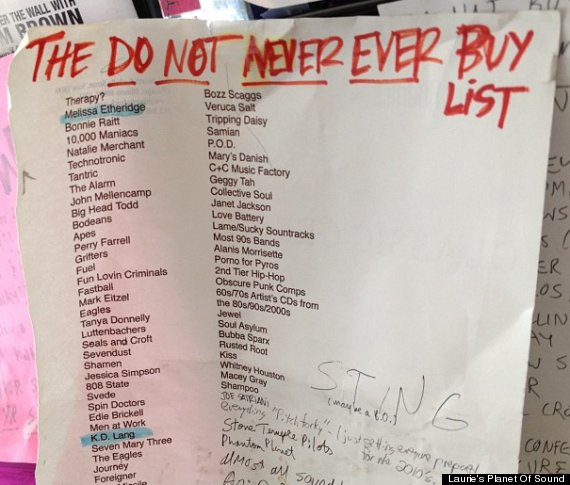 ER THE WALL WITH
M BROWN
THE DO NOT NEVER EVER BUY
LIST
Therapy?
Melissa Etheridge
Bonnie Raitt
10,000 Maniacs
Natalie Merchant
Technotronic
Tantric
The Alarm
John Mellencamp
Big Head Todd
Bodeans
Apes
Perry Farrell
Grifters
Fuel
Fun Lovin Criminals
Fastball
Mark Eitzel
Eagles
Tanya Donnelly
Luttenbachers
Seals and Croft
Sevendust
Shamen
Jessica Simpson
808 State
Svede
Spin Doctors
Edie Brickell
Men at Work
K.D. Lang
Seven Mary Three
The Eagles
Journey
Foreigner
Missile
Bozz Scaggs
Veruca Salt
Tripping Daisy
Samian
P.O.D.
Mary's Danish
C+C Music Factory
Geggy Tah
Collective Soul
Janet Jackson
Love Battery
Lame/Sucky Sountracks
Most 90s Bands
Alanis Morrisette
Porno for Pyros
2nd Tier Hip-Hop
Obscure Punk Comps
60s/70s Artist's CDs from
the 80s/90s/2000s
Jewel
Soul Asylum
Bubba Sparx
Rusted Root
Kiss
Whitney Houston
Macey Gray
Shampoo
JOE SATRIANI
everything "Pitchforky" - (just getting everyone prepared
for the 2010's)
Stone Temple Pilots
Phantom Planet
almost all sound
STING
(maybe a B.O.)
Laurie's Planet Of Sound